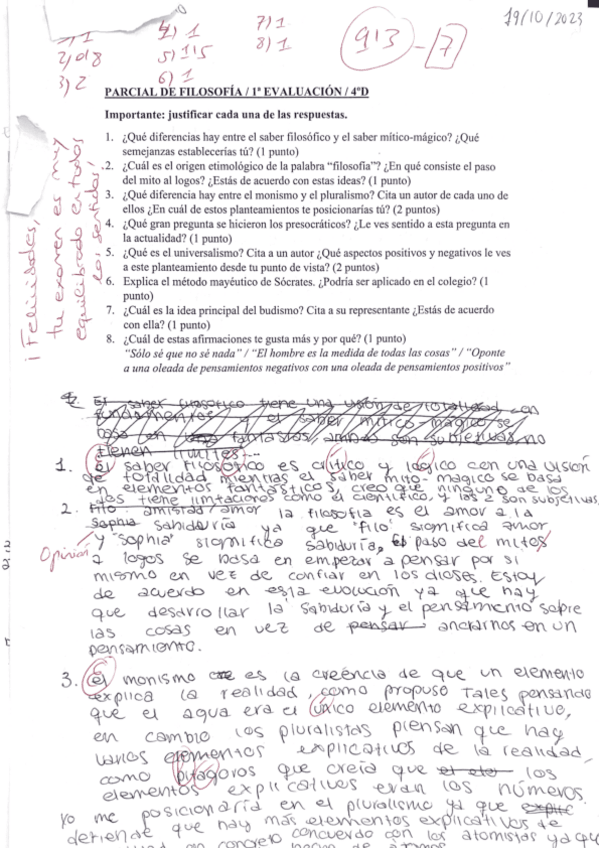 19/10/2023
1) 1 4) 1 7) 1
2) 0'8 5) 1'5 8) 1
3) 2 6) 1
9'3 - 7
¡Felicidades,
tu examen es muy
equilibrado en todos
los sentidos!
PARCIAL DE FILOSOFÍA / 1ª EVALUACIÓN / 4ºD
Importante: justificar cada una de las respuestas.
1. ¿Qué diferencias hay entre el saber filosófico y el saber mítico-mágico? ¿Qué
semejanzas establecerías tú? (1 punto)
2. ¿Cuál es el origen etimológico de la palabra “filosofía”? ¿En qué consiste el paso
del mito al logos? ¿Estás de acuerdo con estas ideas? (1 punto)
3. ¿Qué diferencia hay entre el monismo y el pluralismo? Cita un autor de cada uno de
ellos ¿En cuál de estos planteamientos te posicionarías tú? (2 puntos)
4. ¿Qué gran pregunta se hicieron los presocráticos? ¿Le ves sentido a esta pregunta en
la actualidad? (1 punto)
5. ¿Qué es el universalismo? Cita a un autor ¿Qué aspectos positivos y negativos le ves
a este planteamiento desde tu punto de vista? (2 puntos)
6. Explica el método mayéutico de Sócrates. ¿Podría ser aplicado en el colegio? (1
punto)
7. ¿Cuál es la idea principal del budismo? Cita a su representante ¿Estás de acuerdo
con ella? (1 punto)
8. ¿Cuál de estas afirmaciones te gusta más y por qué? (1 punto)
“Sólo sé que no sé nada” / “El hombre es la medida de todas las cosas” / “Oponte
a una oleada de pensamientos negativos con una oleada de pensamientos positivos”
El saber filosofico tiene una visión de totalidad, con
fundamentos y el saber mitico-magico se
basa en fantasias, ambos son subjetivas, no
tienen limites
1. El saber filosofico es critico y logico con una vision
de totalidad mientras el saber mito-magico se basa
en elementos fantasticos, creo que ninguno de los
dos tiene limitaciones como el cientifico, y las 2 son subjetivas,
2. Filo amistad/amor la filosofia es el amor a la
Sophia sabiduría ya que "Filo" significa amor
y "sophia" significa sabiduria, El paso del mitos
Opinión
a logos se basa en empezar a pensar por si
mismo en vez de confiar en los dioses. Estoy
de acuerdo en esta evolucion ya que hay
que desarrollar la sabiduria y el pensamiento sobre
las cosas en vez de pensar anclarnos en un
pensamiento.
3. el monismo es la creéncia de que un elemento
explica la realidad, como propuso Tales pensando
que el agua era el único elemento explicativo,
en cambio los pluralistas piensan que hay
varios elementos explicativos de la realidad,
como pitagoros que creía que los
elementos explicativos eran los números.
Yo me posicionaria en el pluralismo ya que
defiende que hay más elementos explicativos de
en concreto concuerdo con los atomistas ya que